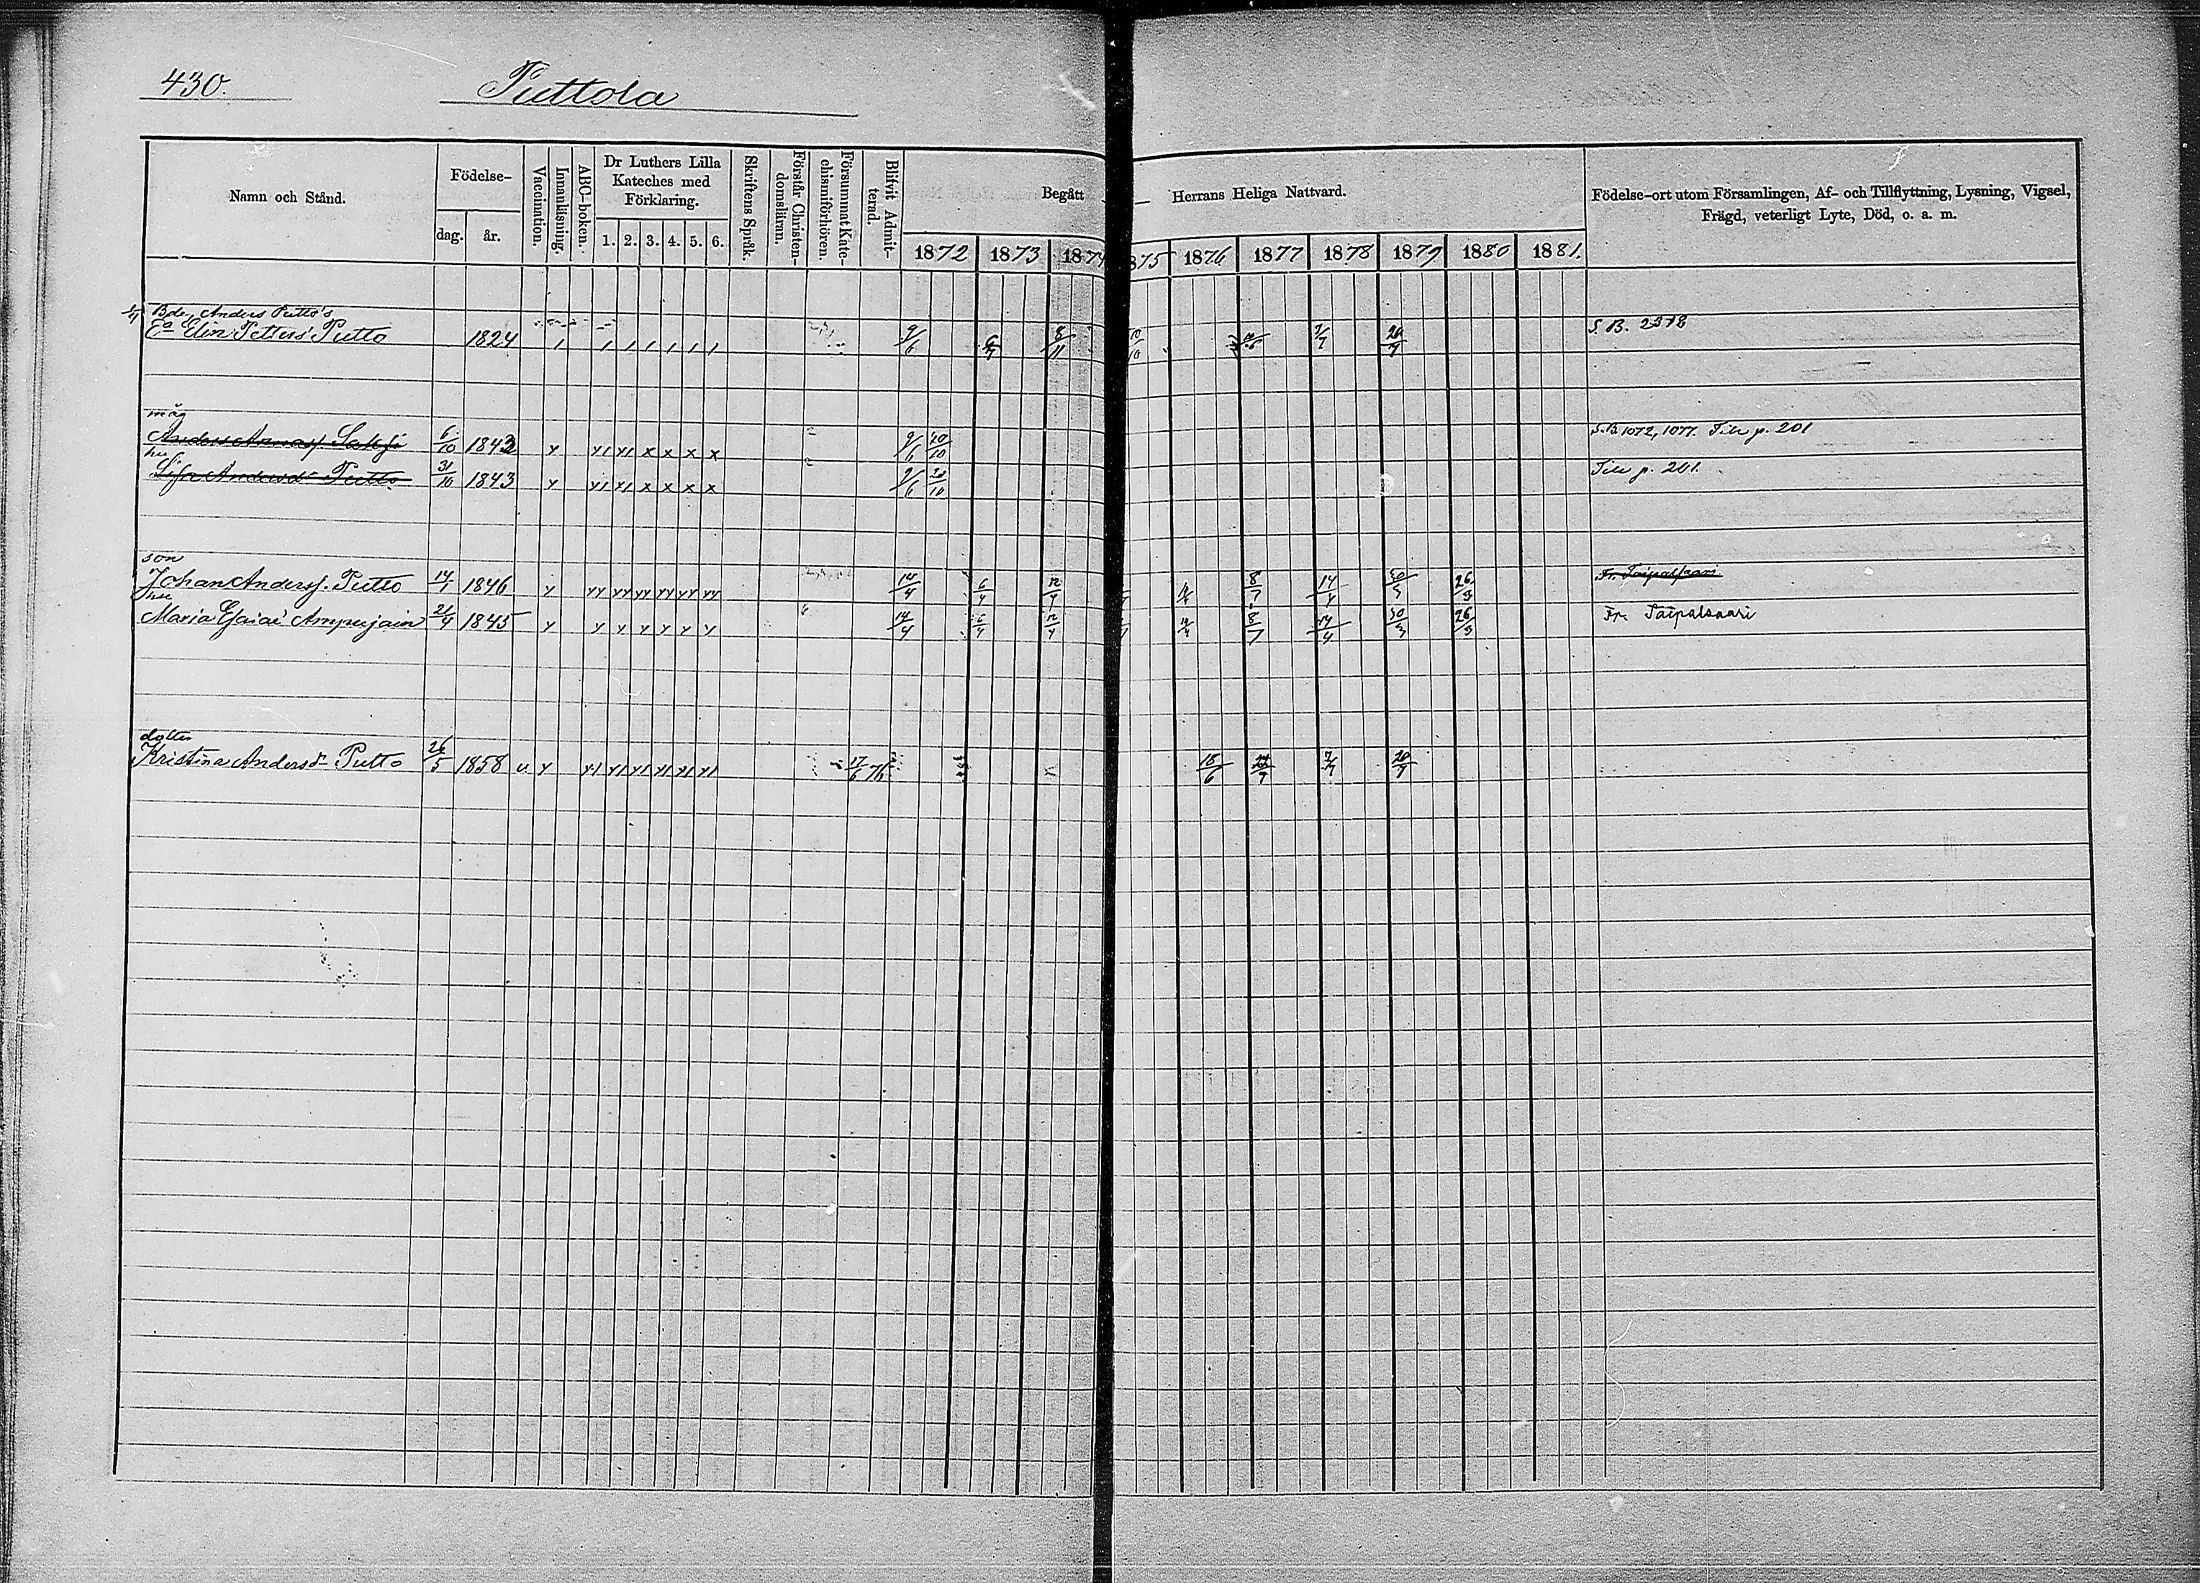 430.
Puttola
Namn och Stånd.
Födelse-
dag.
år.
Vaccination.
Innanläsning.
ABC-boken.
Dr Luthers Lilla
Kateches med
Förklaring.
1. 2. 3. 4. 5. 6.
Skriftens Språk.
Förstår Christen-
domsläran.
Försummat Kate-
chismiförhören.
Blifvit Admit-
terad.
Begått
Herrans Heliga Nattvard.
1872 1873 187 875 1876 1877 1878 1879 1880 1881.
Födelse-ort utom Församlingen, Af- och Tillflyttning, Lysning, Vigsel,
Frägd, veterligt Lyte, Död, o. a. m.
Bde Anders Putto's
Ea Elin Petters Putto 1824 9/6 8/11 7/7 20/7 S. B. 2378
måg
Anders 6/10 1843 y x x x x 9/6 20/10 S.B. 1072, 1077. Till p. 201
hu
Lisa Andersdr Putto 31/10 1843 y x x x x 9/6 20/10 Till p. 201.
son
Johan Anderss. Putto 14/1 1846 y yy yy yy yy yy yy 14/4 6/4 12/4 8/7 14/4 30/3 26/3 Fr. Taipalsaari
hu
Maria Esaiae Ampujain 21/4 1845 y y y y y y y 14/4 6/4 12/4 8/7 14/4 30/3 26/3 Fr. Taipalsaari
dotter
Kristina Andersdr Putto 26/5 1858 u y 17/6 76 18/6 7/7 20/7